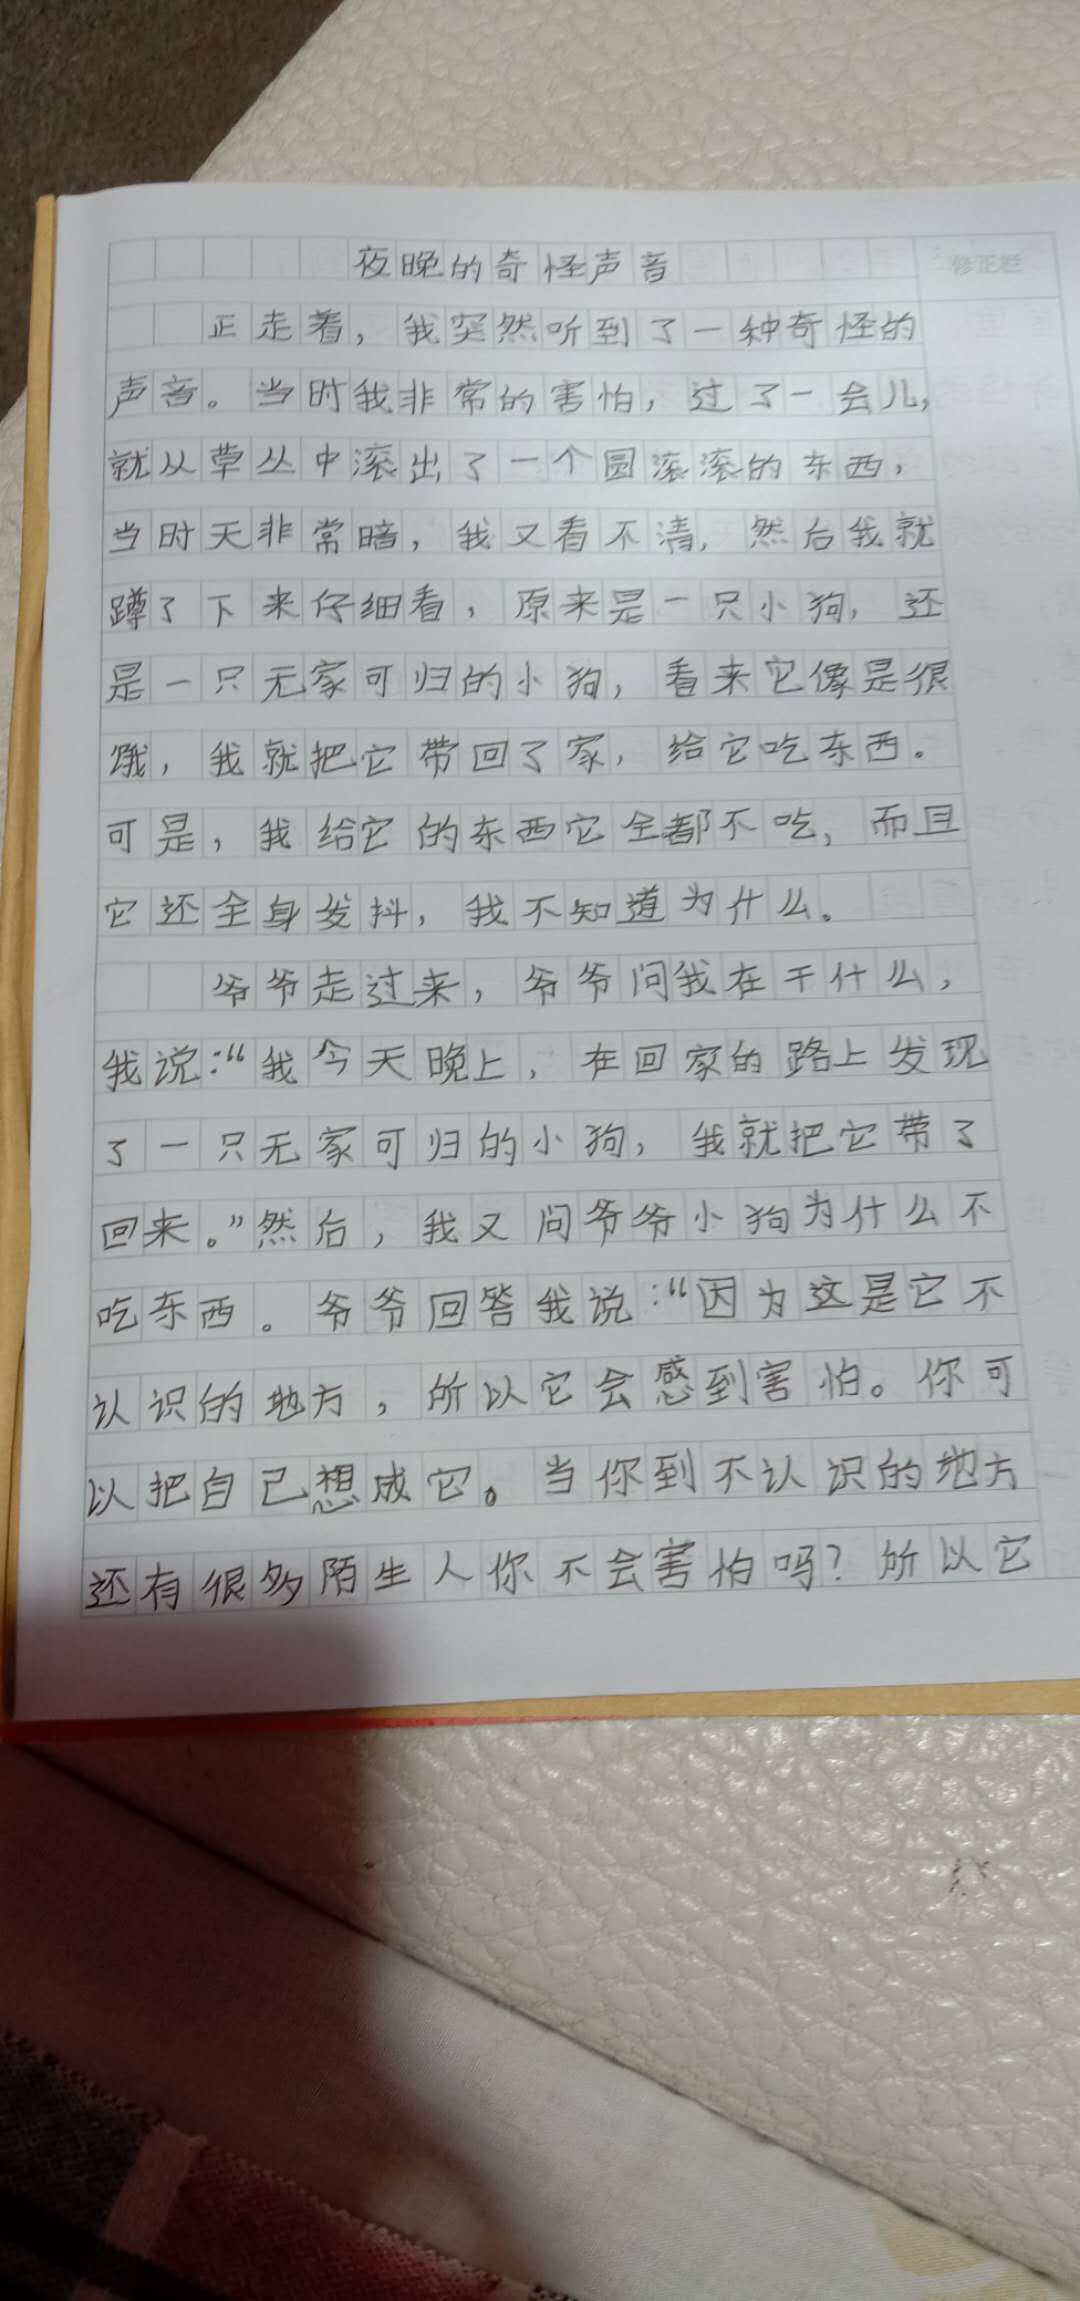 夜晚的奇怪声音
修正栏
正走着，我突然听到了一种奇怪的
声音。当时我非常的害怕，过了一会儿，
就从草丛中滚出了一个圆滚滚的东西，
当时天非常暗，我又看不清，然后我就
蹲了下来仔细看，原来是一只小狗，还
是一只无家可归的小狗，看来它像是很
饿，我就把它带回了家，给它吃东西。
可是，我给它的东西它全都不吃，而且
它还全身发抖，我不知道为什么。
爷爷走过来，爷爷问我在干什么，
我说：“我今天晚上，在回家的路上发现
了一只无家可归的小狗，我就把它带了
回来。”然后，我又问爷爷小狗为什么不
吃东西。爷爷回答我说：“因为这是它不
认识的地方，所以它会感到害怕。你可
以把自己想成它。当你到不认识的地方
还有很多陌生人你不会害怕吗？所以它